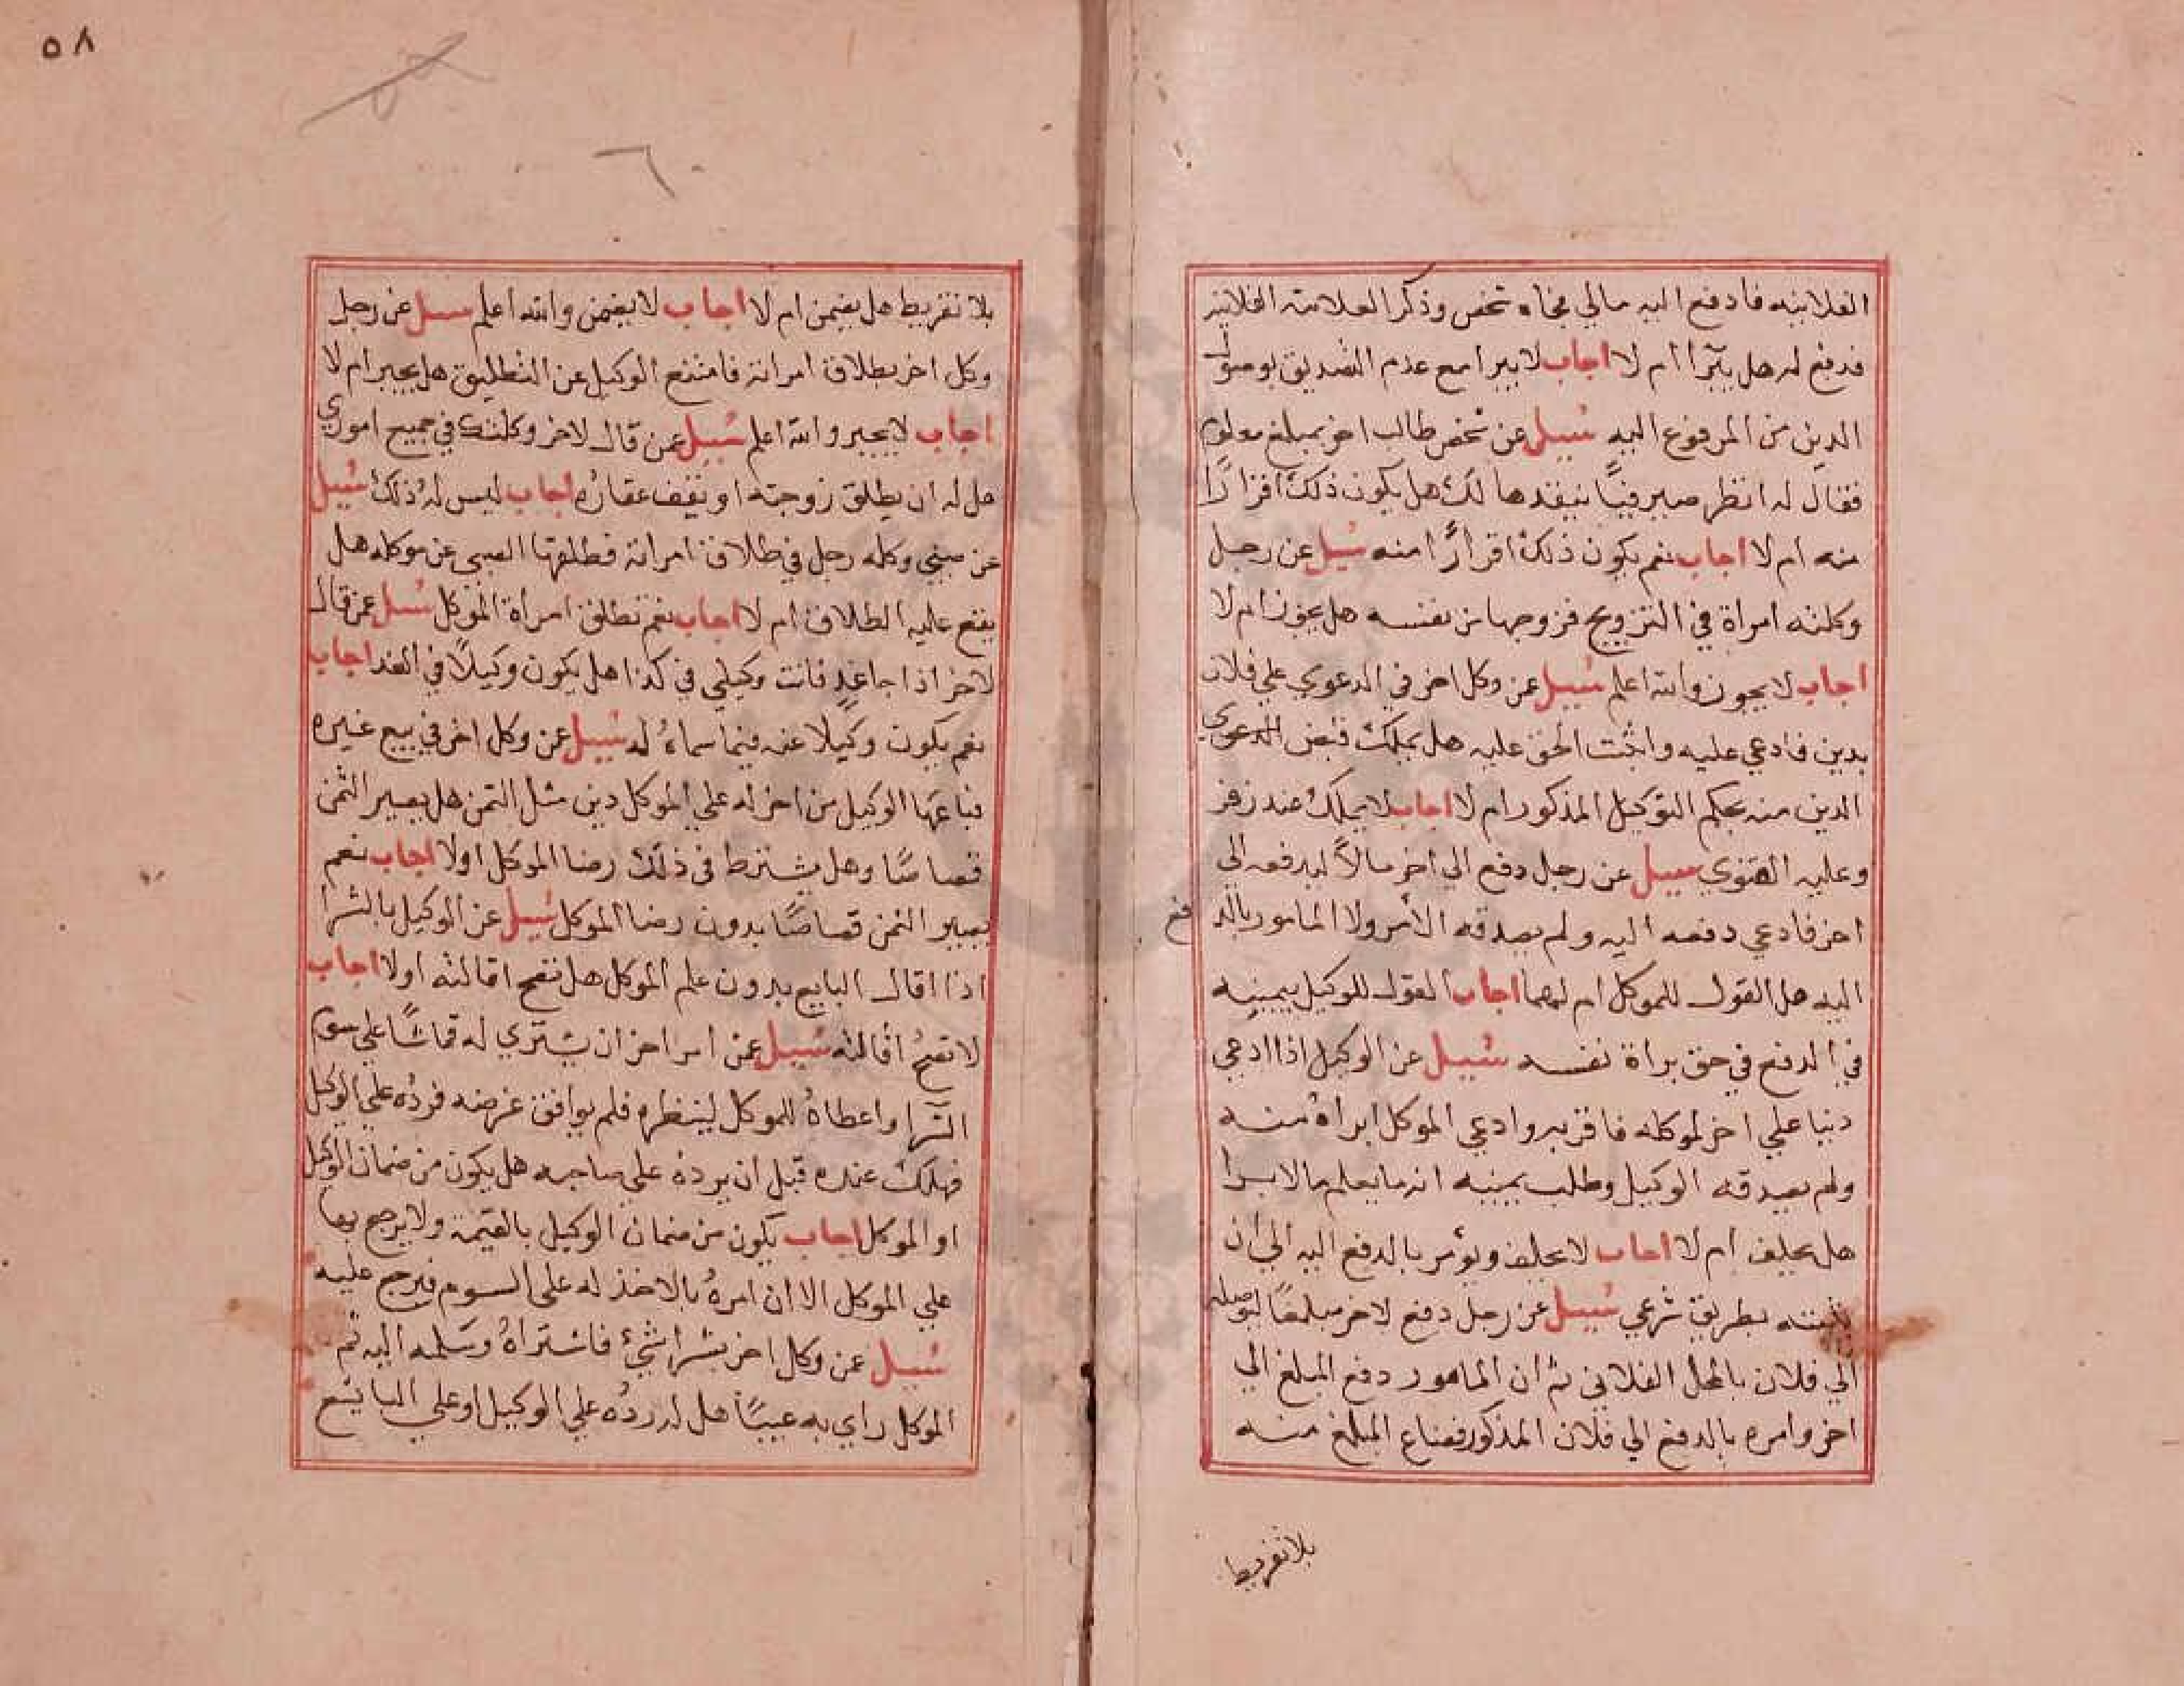 الفلانيه فادفع اليه مالي فجاه شخص وذكر العلامته الفلانيه
فدفع له هل يبرا ام لا اجاب لا يبرا مع عدم التصديق بوصول
الدين من المدفوع اليه سئيل عن شخص طالب اخر بمبلغ معلوم
فقال له انظر صيرفيًا ينقدها لك هل يكون ذلك اقرارًا
منه ام لا اجاب نعم يكون ذلك اقرارًا منه سئيل عن رجل
وكلته امراة في التزويج فزوجها من نفسه هل يجوز ام لا
اجاب لا يجوز والله اعلم سئيل عن وكل اخر في الدعوي علي فلان
بدين فادعي عليه واثبت الحق عليه هل يملك قبض المدعوي
الدين منه بحكم التوكيل المذكور ام لا اجاب لا يملك عند زفر
وعليه الفتوي سئيل عن رجل دفع الي اخر مالاً ليدفعه الي
اخر فادعي دفعه اليه ولم يصدقه الامر ولا المامور بالدفع
اليه هل القول للموكل ام لهما اجاب القول للوكيل بيمينه
في الدفع في حق براة نفسه سئيل عن الوكيل اذا ادعي
دينا علي اخر لموكله فاقر به وادعي الموكل ابراه منه
ولم يصدقه الوكيل وطلب يمينه انه ما يعلم بالابرا
هل يحلف ام لا اجاب لا يحلف ويؤمر بالدفع اليه الي ان
يثبته بطريق شرعي سئيل عن رجل دفع لاخر مبلغًا ليوصله
الي فلان بالمحل الفلاني ثم ان المامور دفع المبلغ الي
اخر وامره بالدفع الي فلان المذكور فضاع المبلغ منه
بلا تفريط
٥٨
بلا تفريط هل يضمن ام لا اجاب لا يضمن والله اعلم سئل عن رجل
وكل اخر بطلاق امراته فامتنع الوكيل عن التطليق هل يجبر ام لا
اجاب لا يجبر والله اعلم سئيل عن قال لاخر وكلتك في جميع اموري
هل له ان يطلق زوجته او يقف عقاره اجاب ليس له ذلك سئيل
عن صبي وكله رجل في طلاق امراته فطلقها الصبي عن موكله هل
يقع عليه الطلاق ام لا اجاب نعم تطلق امراة الموكل سئل عمن قال
لاخر اذا جا غدٍ فانت وكيلي في كذا هل يكون وكيلاً في الغد اجاب
نعم يكون وكيلا عنه فيما سماه له سئيل عن وكل اخر في بيع غيره
فباعها الوكيل من اخر له علي الموكل دين مثل الثمن هل يصير الثمن
قصاصًا وهل يشترط في ذلك رضا الموكل اولا اجاب نعم
يصير الثمن قصاصًا بدون رضا الموكل سئيل عن الوكيل بالشرا
اذا اقال البايع بدون علم الموكل هل تصح اقالته اولا اجاب
لا تصح اقالته سئيل عمن امر اخر ان يشتري له قماشًا علي سوم
الشرا واعطاه للموكل لينظره فلم يوافق غرضه فرده علي الوكيل
فهلك عنده قبل ان يرده علي صاحبه هل يكون من ضمان الوكيل
او الموكل اجاب يكون من ضمان الوكيل بالقيمة ولا يرجع بها
علي الموكل الا ان امره بالاخذ له علي السوم فيرجع عليه
سئيل عن وكل اخر بشرا شيء فاشتراه وسلمه اليه ثم
الموكل راي به عيبًا هل له رده علي الوكيل او علي البايع